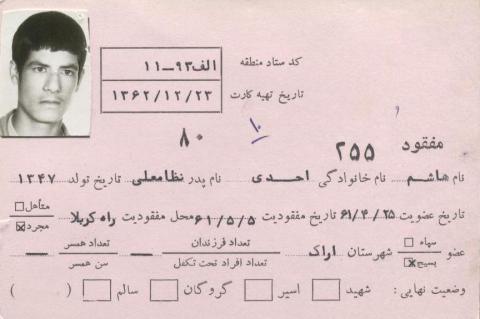 کد ستاد منطقه الف ۹۳-۱۱
تاریخ تهیه کارت ۱۳۶۲/۱۲/۲۳
۸۰ ۱۰
مفقود ۲۵۵
نام هاشم نام خانوادگی احمدی نام پدر نظامعلی تاریخ تولد ۱۳۴۷
تاریخ عضویت ۶۱/۴/۲۵ تاریخ مفقودیت ۶۱/۵/۵ محل مفقودیت راه کربلا متأهل مجرد
عضو سپاه بسیج شهرستان اراک تعداد فرزندان تعداد افراد تحت تکفل تعداد همسر سن همسر
وضعیت نهایی: شهید اسیر گروگان سالم ( )